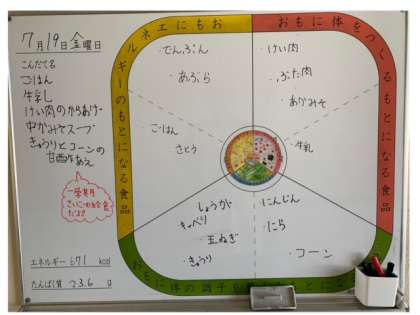 7月19日金曜日
こんだて名
ごはん
牛乳
けい肉のからあげ
中かみそスープ
きゅうりとコーンの
甘酢あえ
一学期
さいごの給食
だよ!
エネルギー 671 kcal
たんぱく質 23.6 g
おもにエネルギーのもとになる食品
でんぷん
あぶら
ごはん
さとう
おもに体をつくるもとになる食品
けい肉
ぶた肉
あかみそ
牛乳
おもに体の調子を
になる食品
しょうが
キャベツ
玉ねぎ
きゅうり
にんじん
にら
コーン